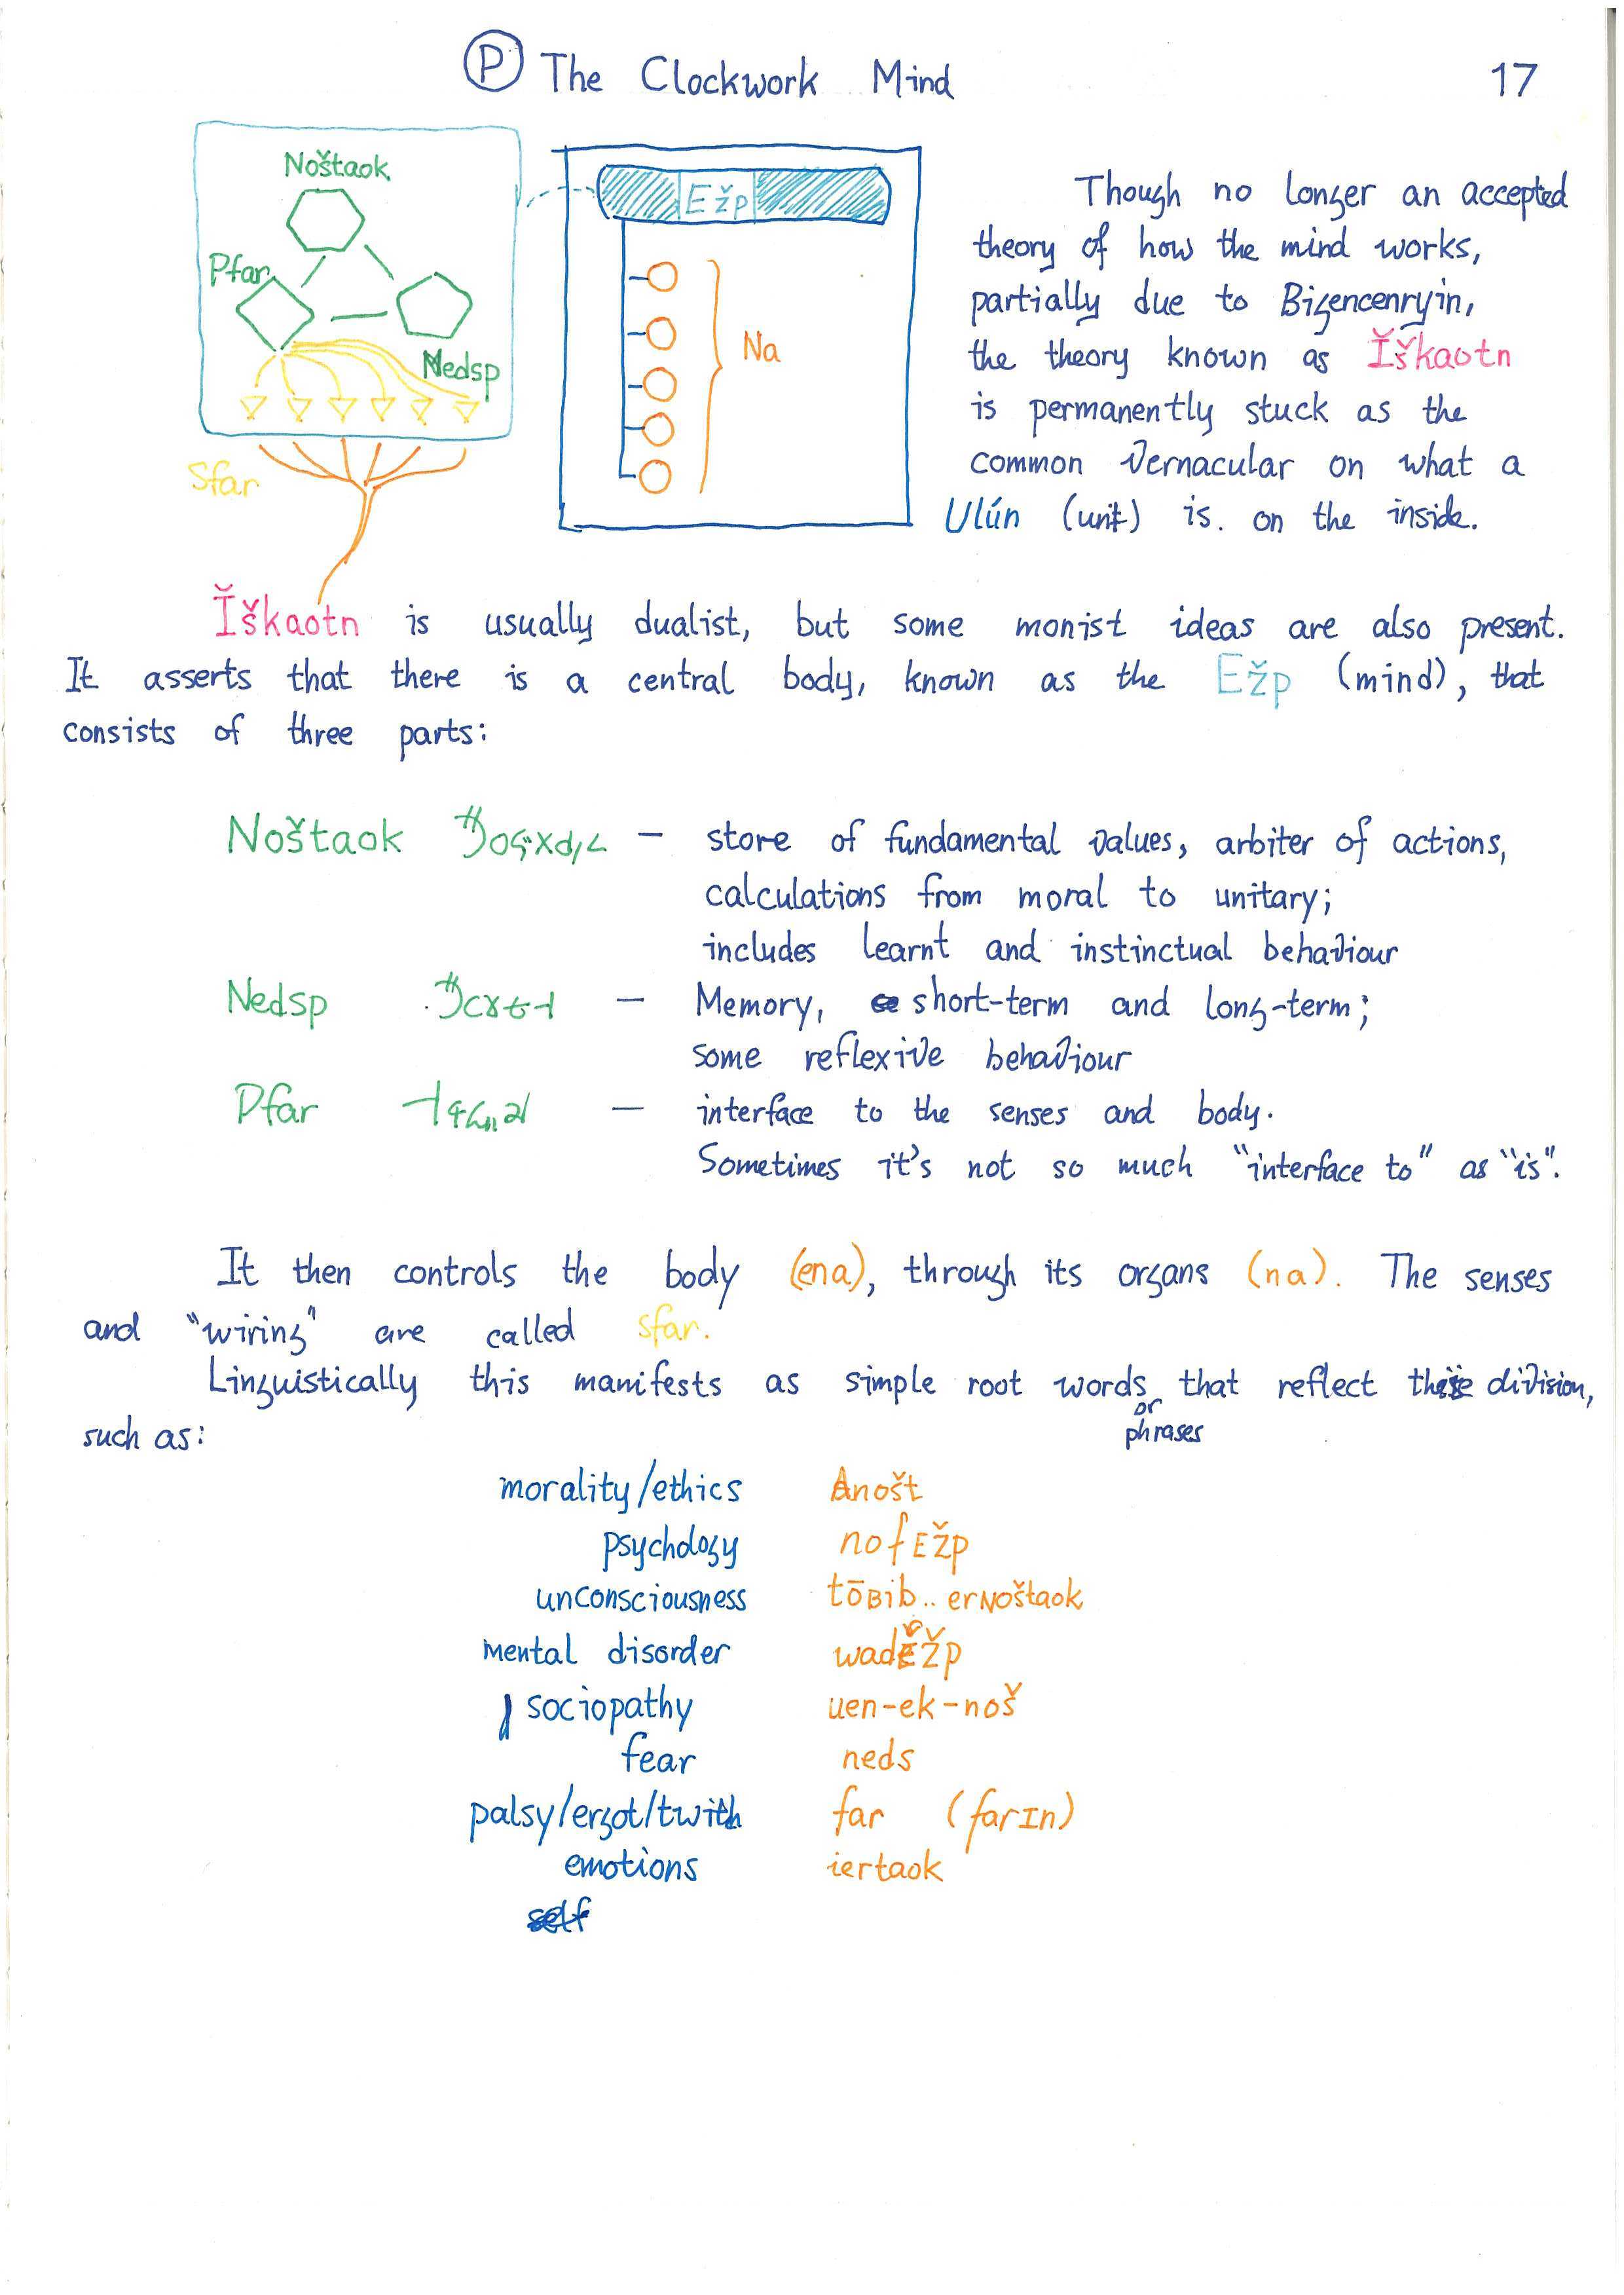 Ⓟ The Clockwork Mind
17
Noštaok
Pfar
Nedsp
Sfar
Ežp
Na
Though no longer an accepted
theory of how the mind works,
partially due to Bigencenryin,
the theory known as Ǐškaotn
is permanently stuck as the
common vernacular on what a
Ulún (unit) is. on the inside.
Ǐškaotn is usually dualist, but some monist ideas are also present.
It asserts that there is a central body, known as the Ežp (mind), that
consists of three parts:
Noštaok — store of fundamental values, arbiter of actions,
calculations from moral to unitary;
includes learnt and instinctual behaviour
Nedsp — Memory, short-term and long-term;
some reflexive behaviour
Pfar — interface to the senses and body.
Sometimes it's not so much "interface to" as "is".
It then controls the body (ena), through its organs (na). The senses
and "wiring" are called sfar.
Linguistically this manifests as simple root words or phrases that reflect this division,
such as:
morality/ethics Anošt
psychology nofEžp
unconsciousness tōBib.. erNoštaok
mental disorder waděžp
sociopathy uen-ek-noš
fear neds
palsy/ergot/twith far (farIn)
emotions iertaok
self